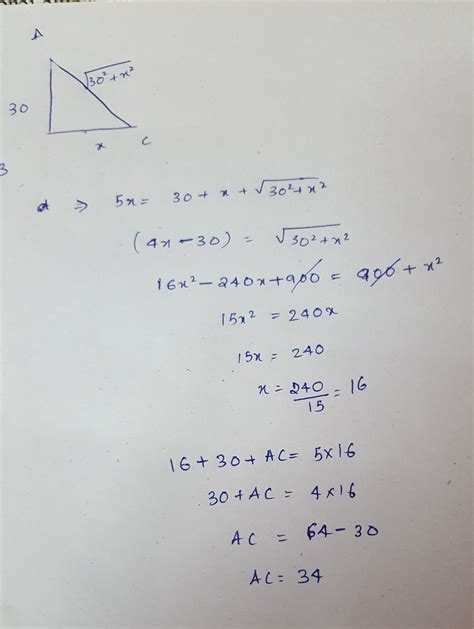 A
√30²+x²
30
x C
B
d ⇒ 5x = 30 + x + √30²+x²
(4x-30) = √30²+x²
16x²-240x+900 = 900 + x²
15x² = 240x
15x = 240
x = 240/15 = 16
16+30+AC = 5×16
30+AC = 4×16
AC = 64-30
AC = 34